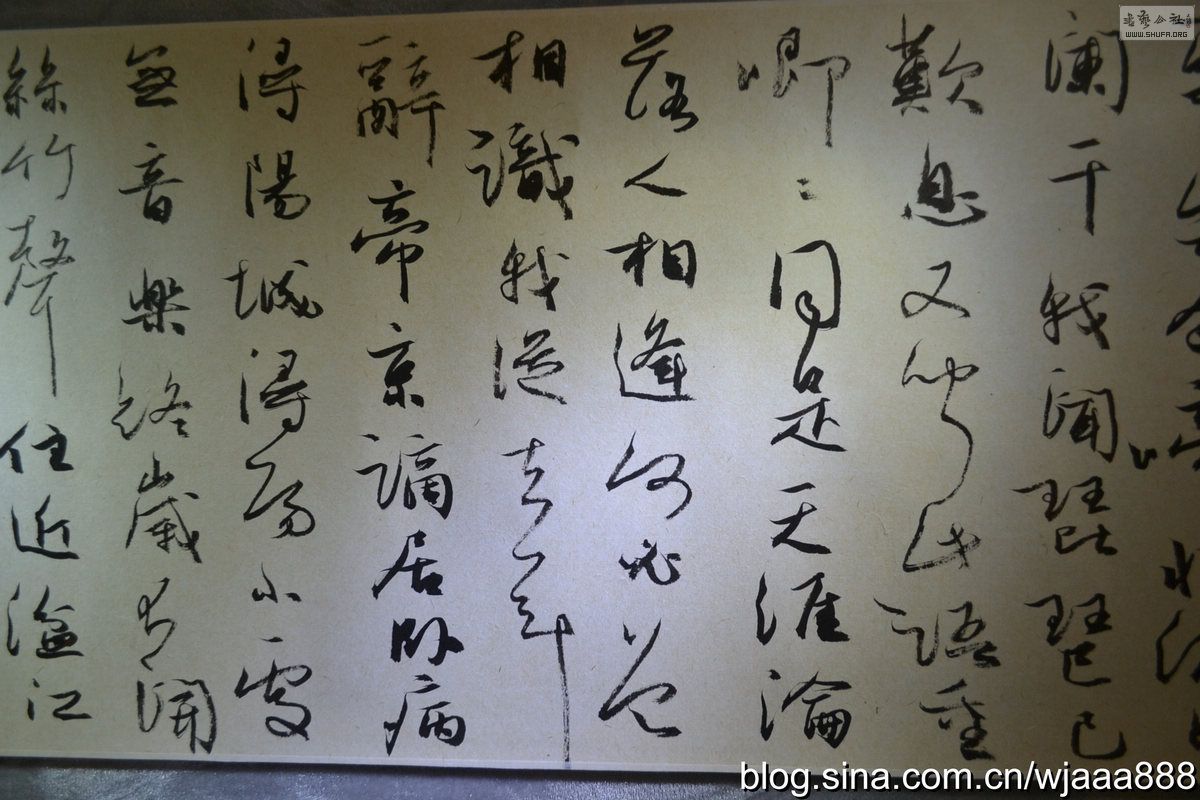 瀾干我聞琵琶已
歎息又聞此語重
唧〻同是天涯淪
落人相逢何必曾
相識我從去年
辭帝京謫居臥病
潯陽城潯陽小處
無音樂終歲聞
絲竹聲住近湓江
書藝公社
WWW.SHUFA.ORG
blog.sina.com.cn/wjaaa888